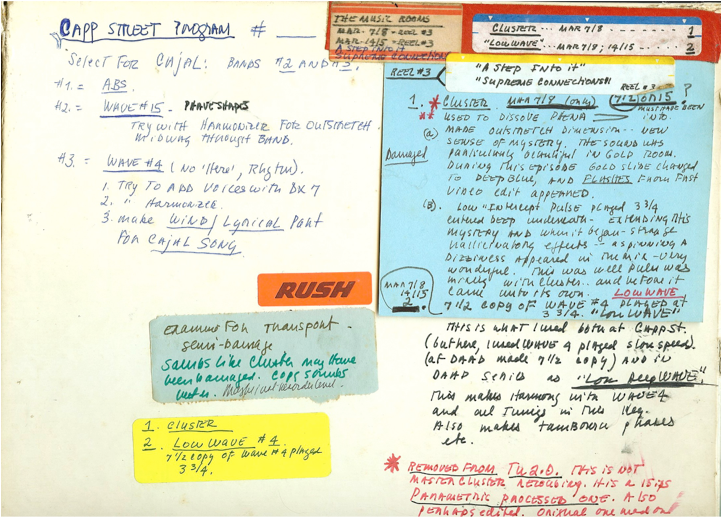 CAPP STREET PROGRAM #
Select FOR CAJAL: BANDS #2 AND #3.
#1. = ABS.
#2. = WAVE #15 - PHAVESHAPES
TRY WITH HARMONIZER FOR OUTSTRETCH
MIDWAY THROUGH BAND.
#3. = WAVE #4 (NO 'Hero', Rhythm).
1. TRY TO ADD VOICES WITH DX 7
2. " HARMONIZER.
3. make WIND / Lyrical PART
FOR CAJAL SONG
RUSH
EXAMINE FOR TRANSPORT -
SEMI-DAMAGE
SOUNDS LIKE CLUSTER MAY HAVE
been DAMAGED. COPY SOUNDS
better.
1. CLUSTER
2. LOW WAVE #4.
7 1/2 COPY OF WAVE #4 PLAYED
3 3/4.
THE MUSIC ROOMS
MAR - 7/8 - REEL #3
MAR - 14/15 - REEL #3
A STEP INTO IT
SUPREME CONNECTIONS
CLUSTER - MAR 7/8 1
"LOW WAVE" - MAR 7/8, 14/15 2
REEL #3
"A STEP INTO IT"
"SUPREME CONNECTIONS"
REEL #3
1. * CLUSTER MAR 7/8 (only) 7 1/2 OR 15 ?
MUST HAVE BEEN
** USED TO DISSOLVE PHENA INTO
(a) MADE OUTSTRETCH DIMENSION -- NEW
SENSE OF MYSTERY. THE SOUND WAS
Damaged
PARTICULARLY BEAUTIFUL IN GOLD ROOM.
DURING THIS EPISODE GOLD SLIDE CHANGED
TO DEEP BLUE, AND FLASHES FROM FAST
VIDEO EDIT APPEARED.
(B). LOW "INTERCEPT PULSE PLAYED 3 3/4
entered DEEP underneath - EXTENDING THIS
MYSTERY AND when it began - strange
hallucinatory effects - a spinning A
DIZZINESS APPEARED IN THE MIX - Very
wonderful. This was well
mixing with CLUSTER.. and before it
came into its own. LOW WAVE
MAR 7/8
14/15
2.
7 1/2 COPY OF WAVE #4 PLAYED AT
3 3/4. "LOW WAVE"
THIS IS what I used both at CAPP ST.
(but here, I used WAVE 4 played slow speed)
(at DAAD made 7 1/2 copy) AND in
DAAD SERIES as "LOW DEEP WAVE".
This makes Harmony with WAVE 4
and all Tunings in This Key.
Also makes tamboura phases
etc.
* REMOVED FROM THE 2.0. THIS IS NOT
MASTER CLUSTER RECORDING. It is a 15 ips
PARAMETRIC PROCESSED ONE. Also
perhaps edited. Original one